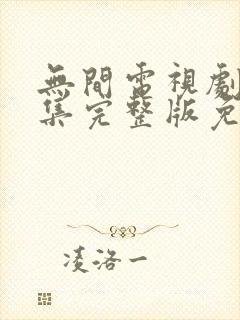 無間電視劇
集完整版免
凌洛一